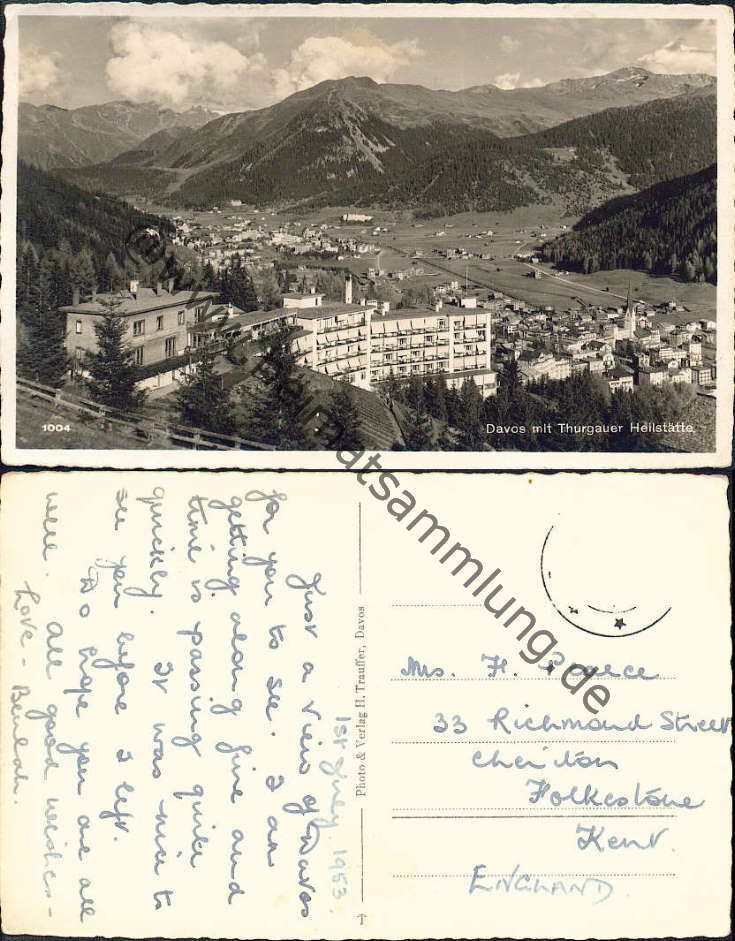 1004
Davos mit Thurgauer Heilstätte
1st July. 1953.
Just a view of Davos
for you to see. I am
getting along fine and
time is passing quite
quickly. It was nice to
see you before I left.
Do hope you are all
well. All good wishes -
Love - Beulah.
Photo & Verlag H. Trauffer, Davos
Mrs. H.
33 Richmond Street
Cheriton
Folkestone
Kent.
ENGLAND